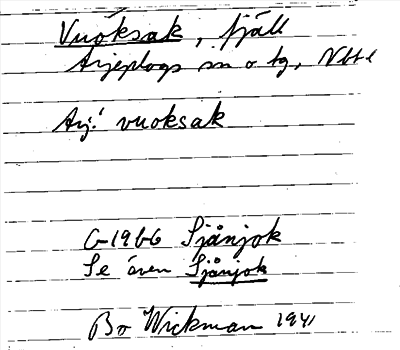 Vuoksak, fjäll
Arjeplogs sn o tg, Vbtl
Arj: vuoksak
G-1966 Sjånjok
Se även Sjånjok
Bo Wickman 1941